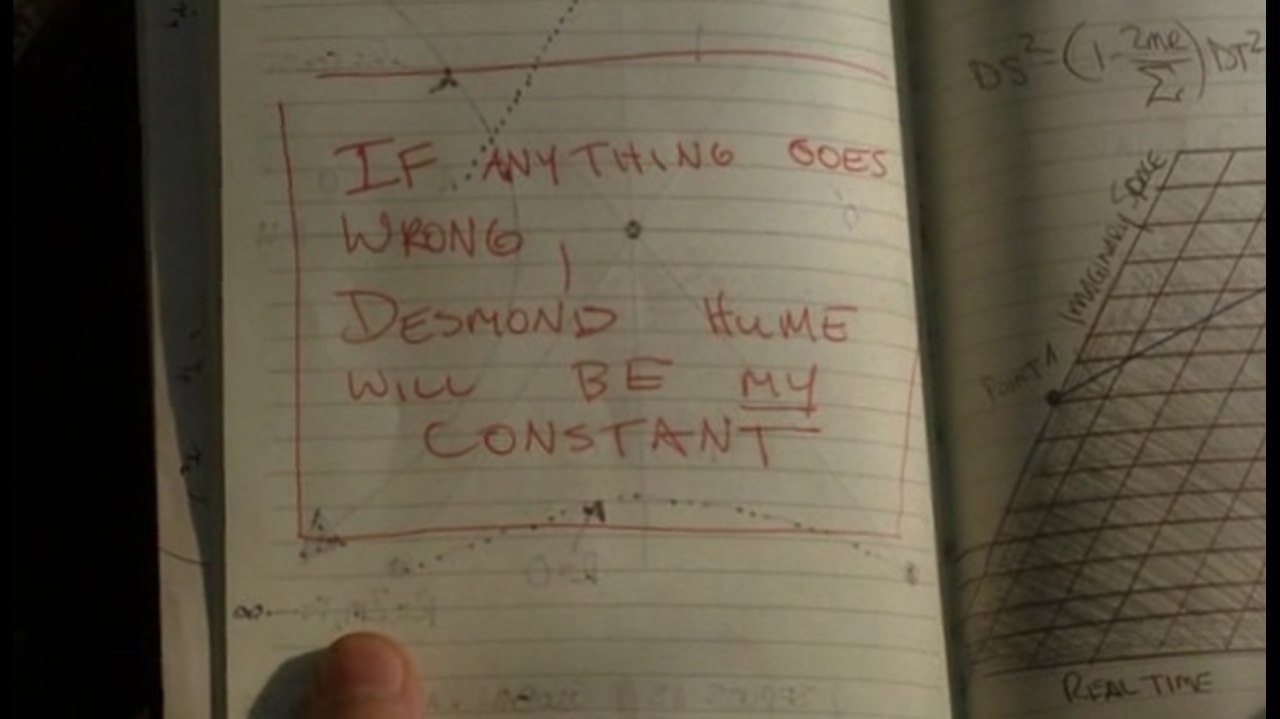 IF ANYTHING GOES
WRONG,
DESMOND HUME
WILL BE MY
CONSTANT
DS² = (1 - 2mr/Σ) DT²
IMAGINARY SPACE
POINT A
REAL TIME